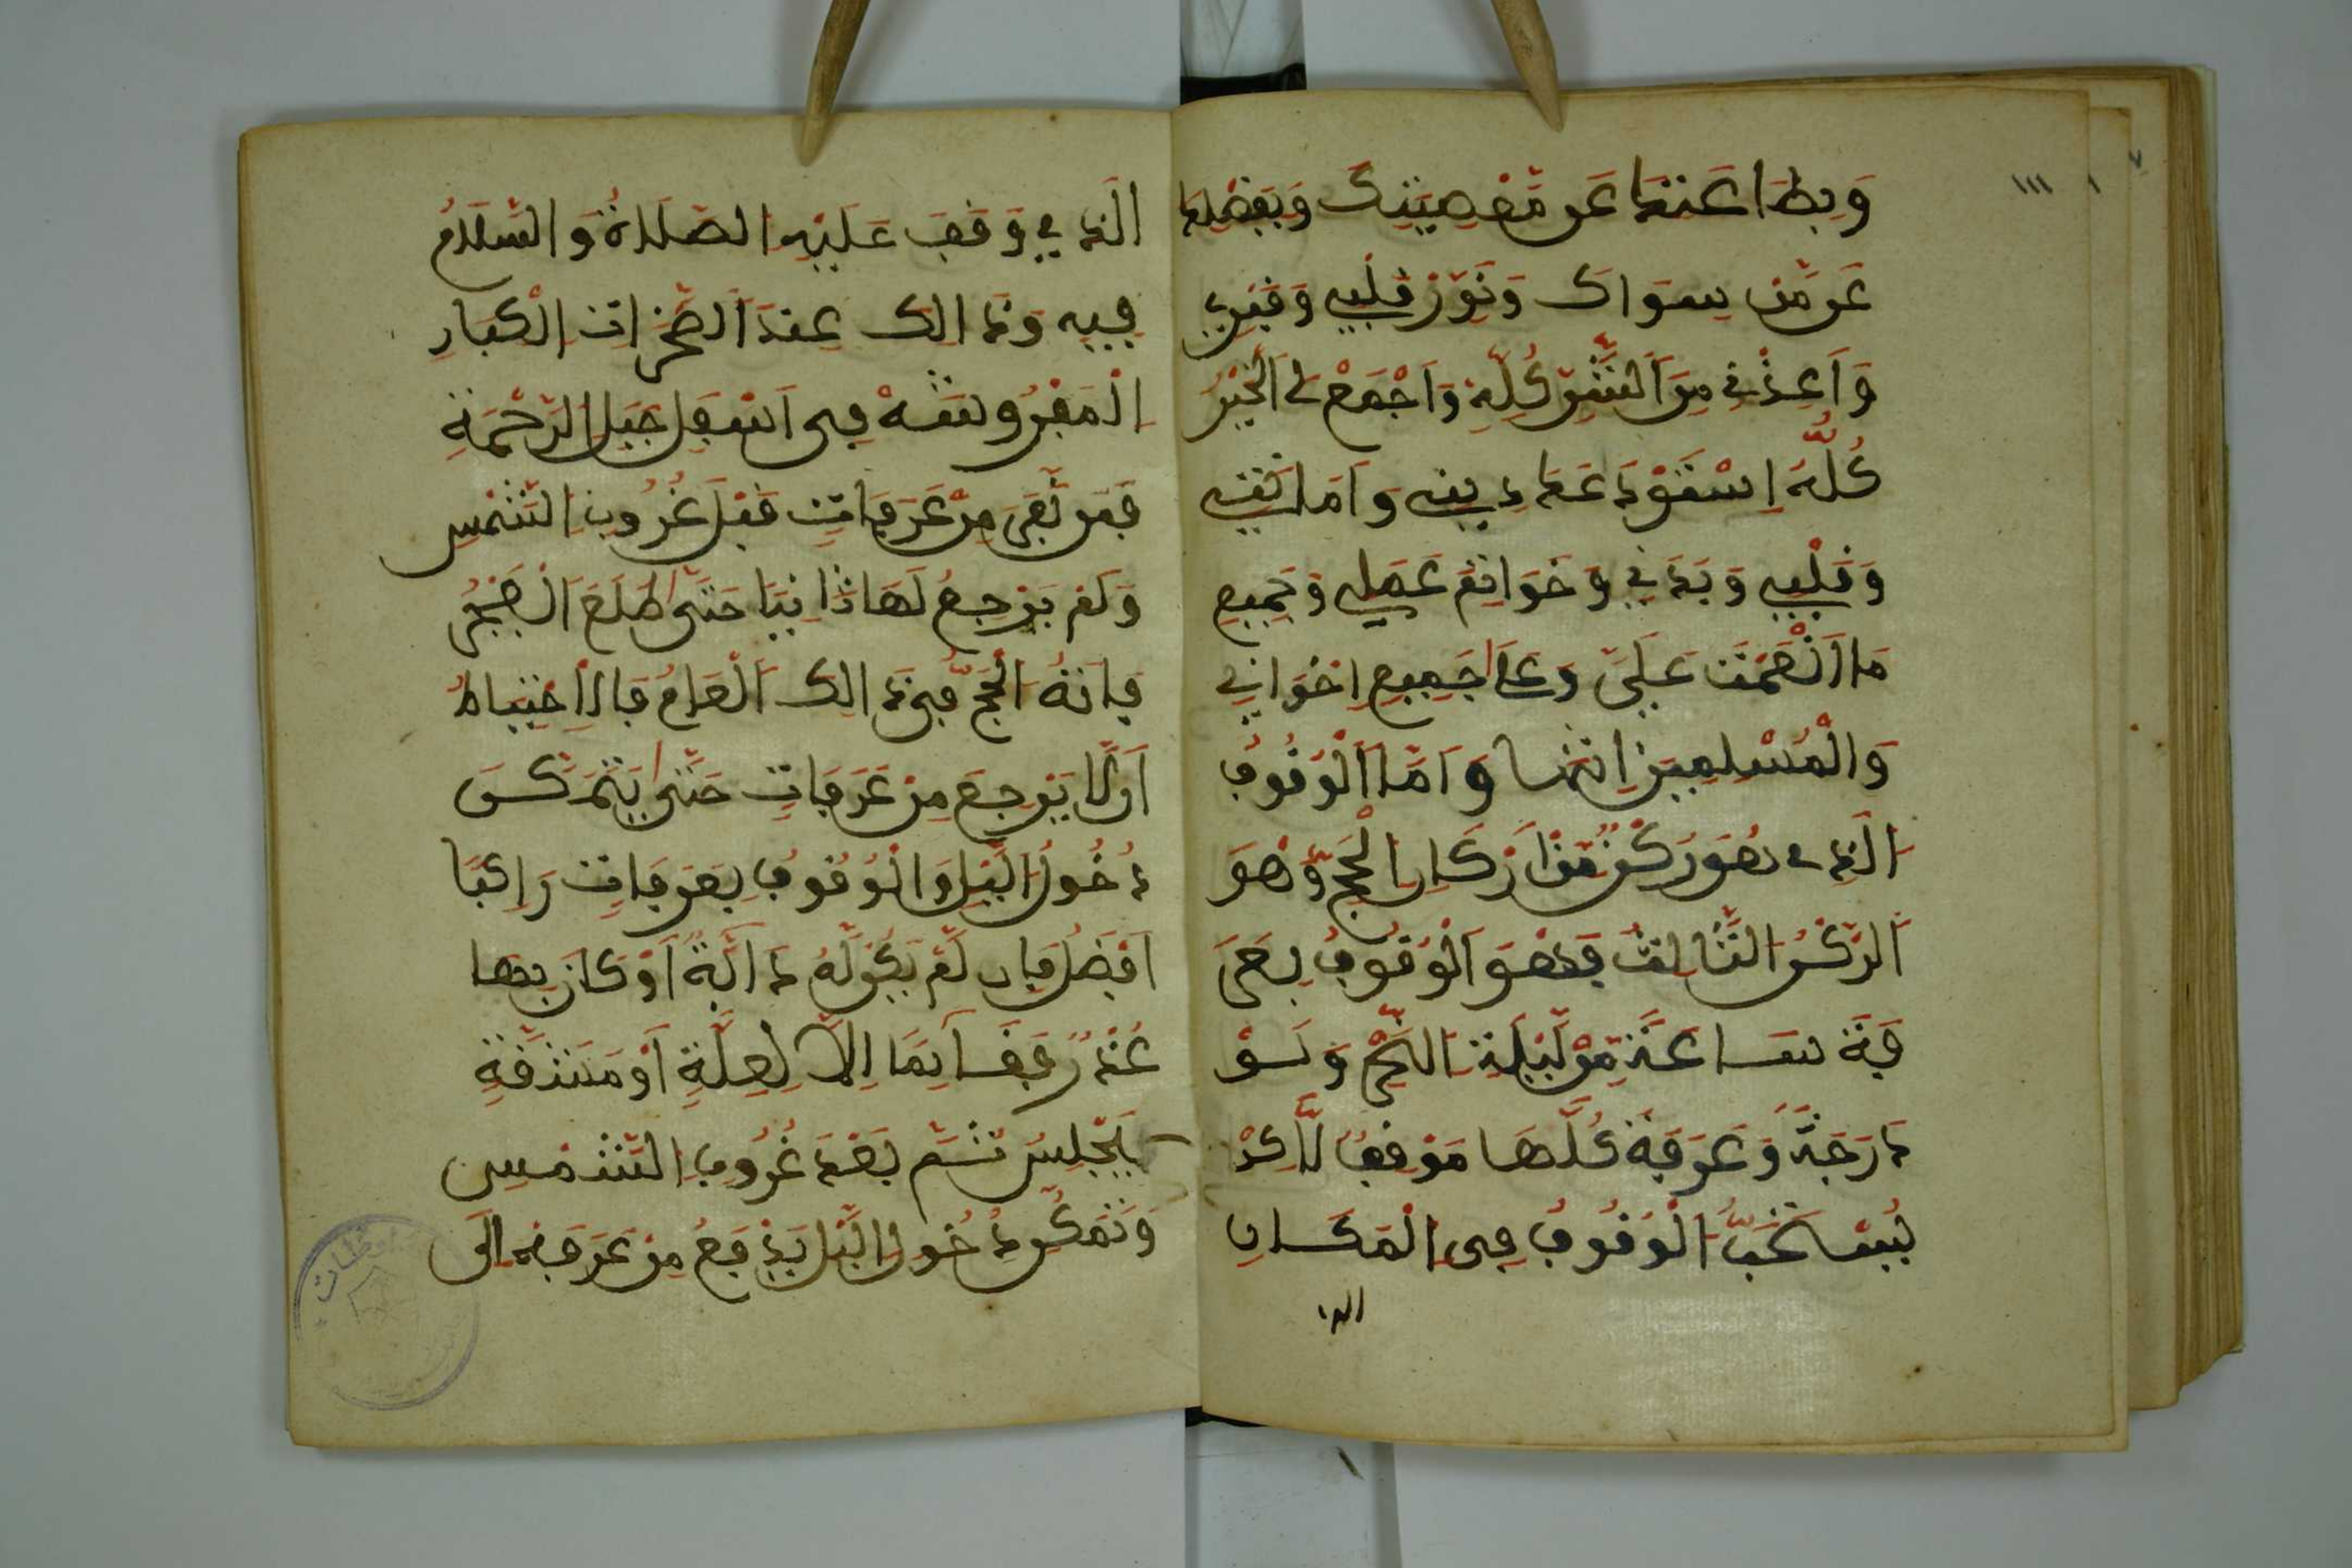 ١١١
وَبِطَاعَتِكَ عَن مَّعْصِيَتِكَ وَبِفَضْلِكَ
عَن مَّن سِوَاكَ وَنَوِّرْ قَلْبِي وَقَبْرِي
وَأَعِذْنِي مِنَ الشَّرِّ كُلِّهِ وَاجْمَعْ لِي الْخَيْرَ
كُلَّهُ اسْتَوْدَعْتُكَ دِينِي وَأَمَانَتِي
وَقَلْبِي وَبَدَنِي وَخَوَاتِمَ عَمَلِي وَجَمِيعَ
مَا أَنْعَمْتَ عَلَيَّ وَعَلَى جَمِيعِ إِخْوَانِي
وَالْمُسْلِمِينَ انتهى وَأَمَّا الْوُقُوفُ
الَّذِي هُوَ رُكْنٌ مِّنْ أَرْكَانِ الْحَجِّ وَهُوَ
الرُّكْنُ الثَّالِثُ فَهُوَ الْوُقُوفُ بِعَرَ
فَةَ سَاعَةً مِّن لَّيْلَةِ النَّحْرِ وَلَوْ
مَارَّ وَعَرَفَةُ كُلُّهَا مَوْقِفٌ لَّاكِنْ
يُسْتَحَبُّ الْوُقُوفُ فِي الْمَكَانِ
الذ
الَّذِي وَقَفَ عَلَيْهِ الصَّلَاةُ وَالسَّلَامُ
فِيهِ وَذَالِكَ عِندَ الصَّخَرَاتِ الْكِبَارِ
الْمَفْرُوشَةِ فِي أَسْفَلِ جَبَلِ الرَّحْمَةِ
فَمَن نَّفَرَ مِنْ عَرَفَاتٍ قَبْلَ غُرُوبِ الشَّمْسِ
وَلَمْ يَرْجِعْ لَهَا ثَانِيًا حَتَّى طَلَعَ الْفَجْرُ
فَاتَهُ الْحَجُّ فِي ذَالِكَ الْعَامِ فَالِاحْتِيَاطُ
أَن لَّا يَرْجِعَ مِنْ عَرَفَاتٍ حَتَّى يَتَمَكَّنَ
دُخُولُ اللَّيْلِ وَالْوُقُوفُ بِعَرَفَاتٍ رَاكِبًا
أَفْضَلُ فَإِن لَّمْ يَكُن لَّهُ دَابَّةٌ أَوْ كَانَ بِهَا
عُذْرٌ وَقَفَ قَائِمًا إِلَّا لِعِلَّةٍ أَوْ مَشَقَّةٍ
فَيَجْلِسُ ثُمَّ بَعْدَ غُرُوبِ الشَّمْسِ
وَتَمَكُّنِ دُخُولِ اللَّيْلِ يَدْفَعُ مِنْ عَرَفَةَ إِلَى